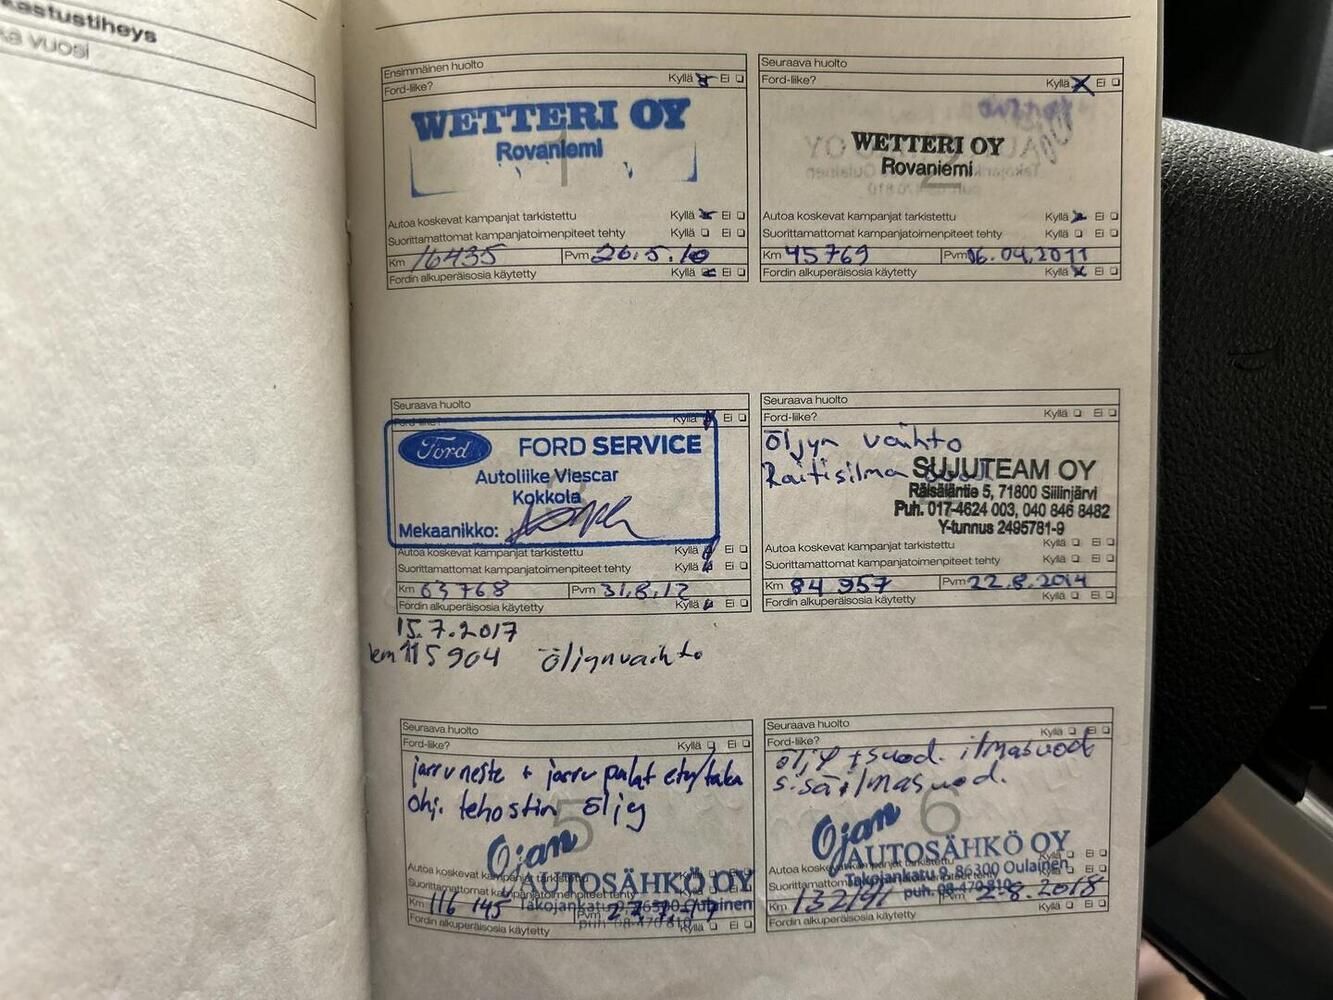 kastustiheys
ka vuosi
Ensimmäinen huolto
Ford-liike? Kyllä Ei
WETTERI OY
Rovaniemi
1
Autoa koskevat kampanjat tarkistettu Kyllä Ei
Suorittamattomat kampanjatoimenpiteet tehty Kyllä Ei
Km 16435 Pvm 26.5.10
Fordin alkuperäisosia käytetty Kyllä Ei
Seuraava huolto
Ford-liike? Kyllä Ei
WETTERI OY
Rovaniemi
2
Autoa koskevat kampanjat tarkistettu Kyllä Ei
Suorittamattomat kampanjatoimenpiteet tehty Kyllä Ei
Km 45769 Pvm 06.04.2011
Fordin alkuperäisosia käytetty Kyllä Ei
Seuraava huolto
Ford-liike? Kyllä Ei
Ford FORD SERVICE
Autoliike Viescar
Kokkola
Mekaanikko:
Autoa koskevat kampanjat tarkistettu Kyllä Ei
Suorittamattomat kampanjatoimenpiteet tehty Kyllä Ei
Km 63768 Pvm 31.8.12
Fordin alkuperäisosia käytetty Kyllä Ei
15.7.2017
km 115904 öljynvaihto
Seuraava huolto
Ford-liike? Kyllä Ei
öljyn vaihto
Raitisilma
SUJUTEAM OY
Räisäläntie 5, 71800 Siilinjärvi
Puh. 017-4624 003, 040 846 8482
Y-tunnus 2495781-9
Autoa koskevat kampanjat tarkistettu Kyllä Ei
Suorittamattomat kampanjatoimenpiteet tehty Kyllä Ei
Km 84 957 Pvm 22.8.2014
Fordin alkuperäisosia käytetty Kyllä Ei
Seuraava huolto
Ford-liike? Kyllä Ei
jarruneste + jarrupalat etu/taka
ohj. tehostin öljy
5
Ojan
AUTOSÄHKÖ OY
Autoa koskevat kampanjat tarkistettu
Suorittamattomat kampanjatoimenpiteet tehty
Takojankatu 9, 86300 Oulainen
puh. 08-470 810
Km 116 145 Pvm 27.7.17
Fordin alkuperäisosia käytetty Kyllä Ei
Seuraava huolto
Ford-liike? Kyllä Ei
öljy + suod. ilmasuod
sisäilmasuod.
6
Ojan
AUTOSÄHKÖ OY
Takojankatu 9, 86300 Oulainen
puh. 08-470 810
Autoa koskevat kampanjat tarkistettu Kyllä Ei
Suorittamattomat kampanjatoimenpiteet tehty
Km Pvm 2.8.2018
Fordin alkuperäisosia käytetty Kyllä Ei